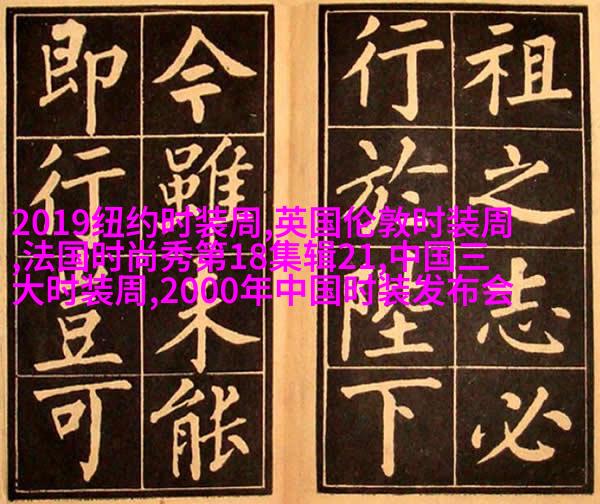 祖之志必
行於陛下
今雖未能
即行豈可
2019纽约时装周,英国伦敦时装周
,法国时尚秀第18集辑21,中国三
大时装周,2000年中国时装发布会